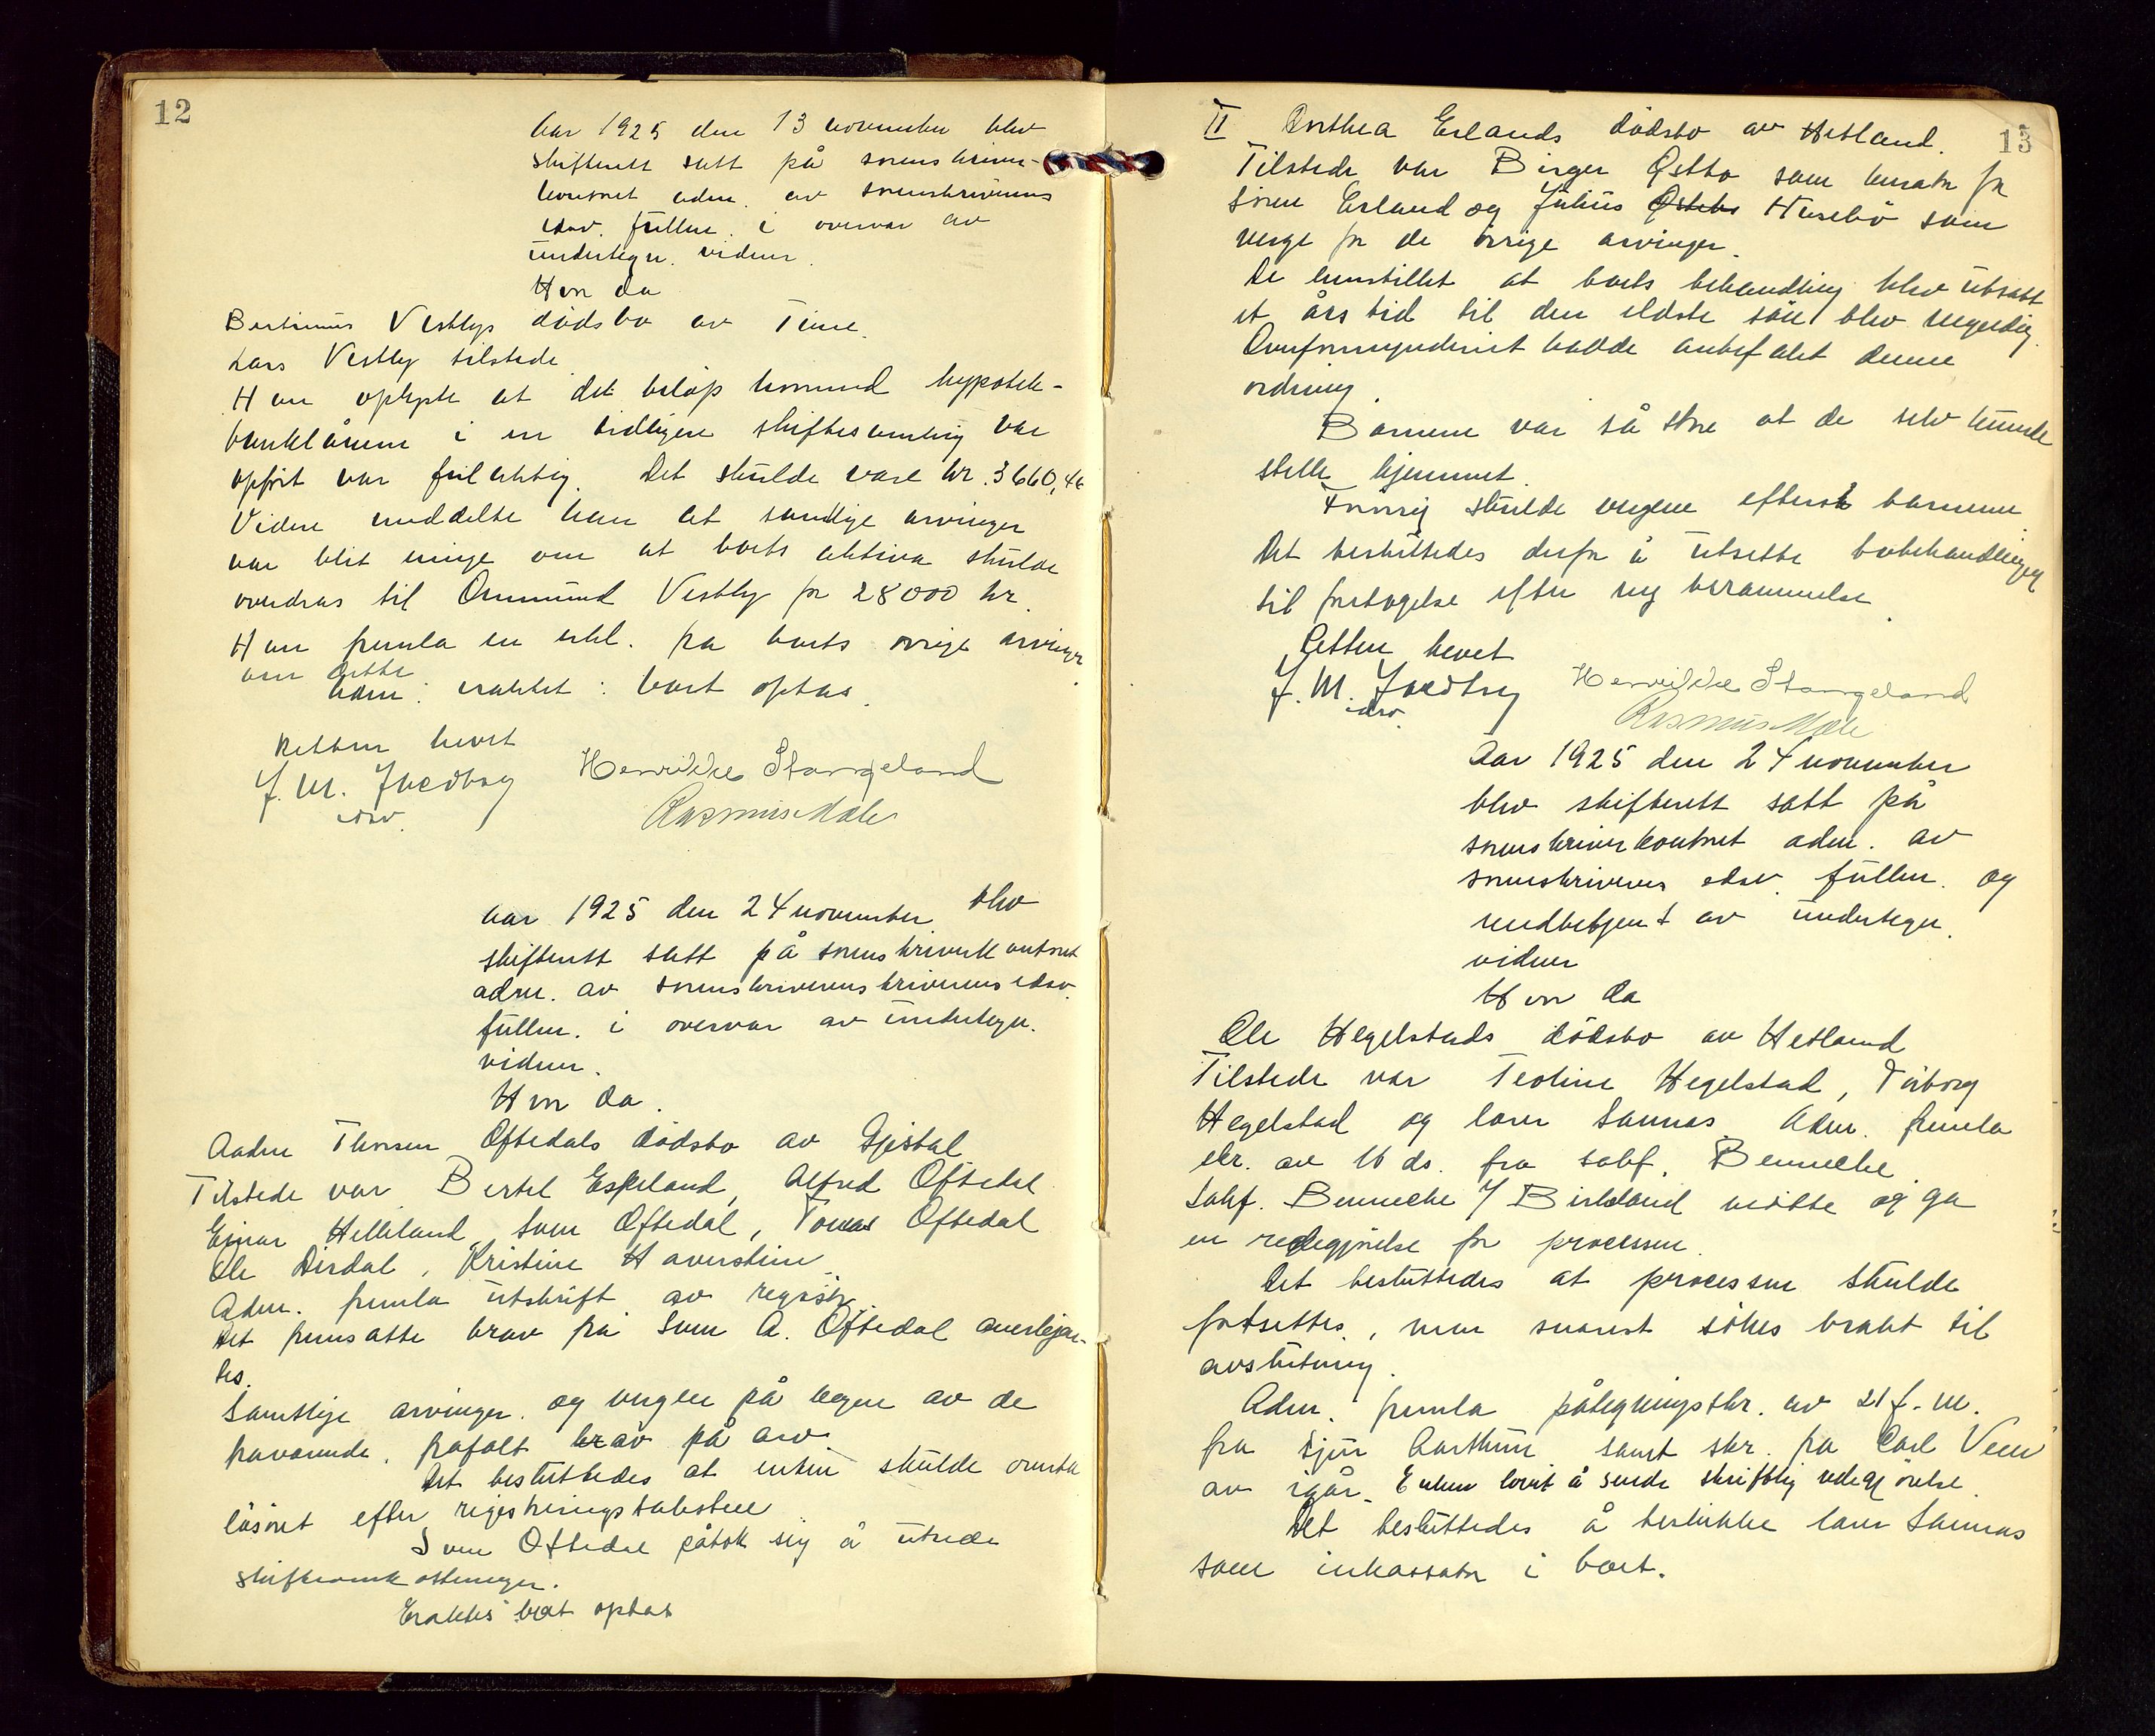 12
Aar 1925 den 13 november blev
skifterett satt på sorenskriver-
kontoret adm. av sorenskriverens
edsv. fullm. i overvær av
undertegn. vidner.
Hvor da
Bertinius Vestlys dödsbo av Time.
Lars Vestly tilstede.
Han oplyste at det beløp hvormed hypotek-
banklånene i en tidligere skiftesamling var
opfört var feilaktig. Det skulde være kr. 3660,46
Videre meddelte han at samtlige arvinger
var blit enige om at boets aktiva skulde
overdras til Ommund Vestly for 28000 kr.
Han fremla en erkl. fra boets övrige arvinger
om dette
Adm. eraktet: boet optas.
Retten hevet
J. M. Ivedtsg Henrikke Stangeland
edsv. Rasmus Mæle
Aar 1925 den 24 november blev
skifterett satt på sorenskriverkontoret
adm. av sorenskriverenskriverens edsv.
fullm. i overvær av undertegn.
vidner.
Hvor da.
Aadne Thorsen Oftedals dödsbo av Gjestal
Tilstede var Bertel Espeland, Alfred Oftedal
Einar Helleland, Sven Oftedal, Tomas Oftedal
Ole Dirdal, Kristine Haverstein
Adm. fremla utskrift av registr.
Det fremsatte krav fra Sven A. Oftedal anerkjen-
tes.
Samtlige arvinger og vergen på vegne av de
fraværende frafalt krav på arv.
Det besluttedes at enken skulde overta
lösöret efter registreringstaksten
Sven Oftedal påtok sig å utrede
skifteomkostninger.
Eraktes boet optat
13
II Anthea Erlands dödsbo av Hetland.
Tilstede var Birger Østbo som kurator for
Sören Erland og Julius Østebø Husebö som
verge for de övrige arvinger.
De henstillet at boets behandling blev utsatt
et års tid til den eldste sön blev myndig.
Overformynderiet hadde anbefalet denne
ordning.
Barnene var så store at de selv kunde
stelle hjemmet.
Forövrig skulde vergene efterse barnene
Det besluttedes derfor å utsette bobehandlingen
til foretagelse efter ny berammelse.
Retten hevet
J. M. Ivedtsg Henrikke Stangeland
edsv. Rasmus Mæle
Aar 1925 den 24 november
blev skifterett satt på
sorenskriverkontoret adm. av
sorenskriverens edsv. fullm. og
medbetjent av undertegn.
vidner
Hvor da
Ole Hegelstads dödsbo av Hetland
Tilstede var Teoline Hegelstad, Torborg
Hegelstad og lærer Sannes. Adm. fremla
skr. av 16 ds. fra sakf. Bennecke
Sakf. Bennecke f/ Birkeland mötte og ga
en redegjörelse for processen.
Det besluttedes at processen skulde
fortsettes, men snarest sökes bragt til
avslutning.
Adm. fremla påtegningsskr. av 21 f. m.
fra Sjur Aarthun samt skr. fra Carl Veen
av igår. Enken lovet å sende skriftlig redegjörelse.
Det besluttedes å beskikke lærer Sannes
som inkassator i boet.